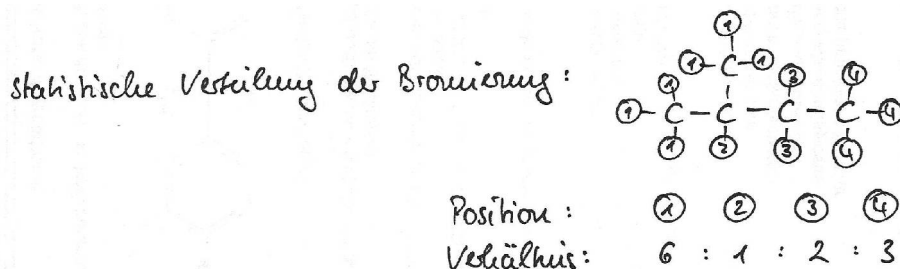 statistische Verteilung der Bromierung:
1
1 C 1
1 3 4
1 C C C C 4
1 2 3 4
Position: 1 2 3 4
Verhältnis: 6 : 1 : 2 : 3